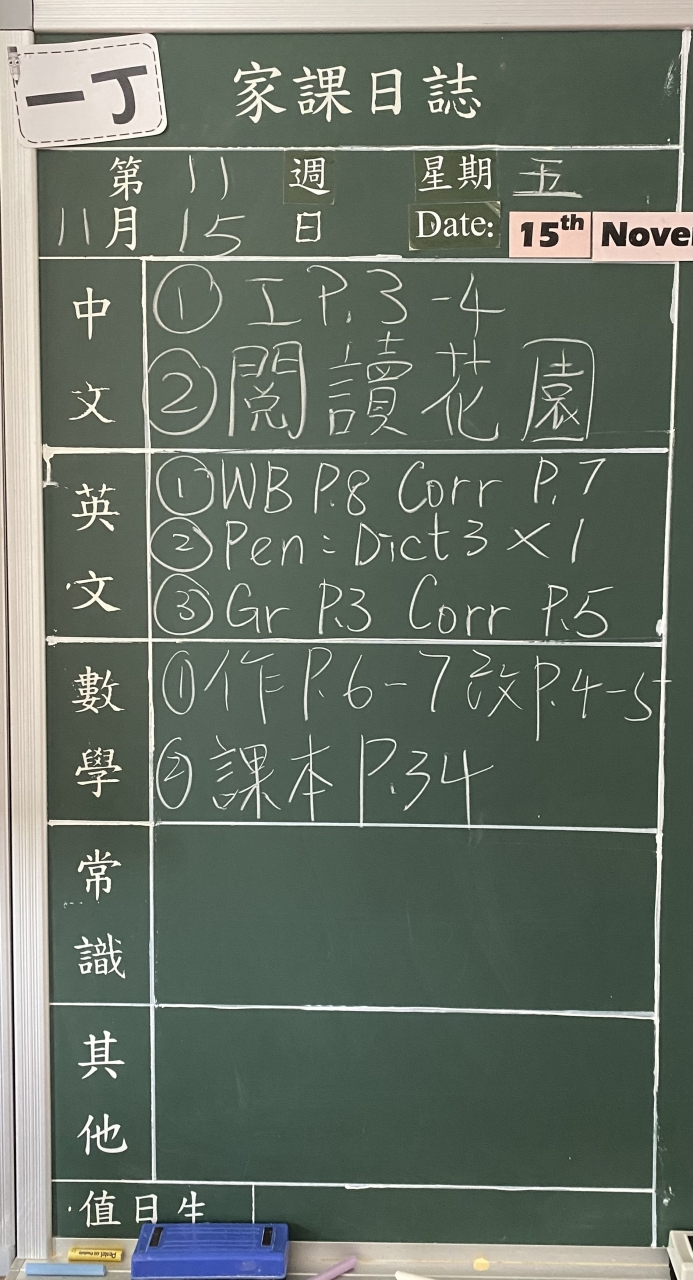 一丁
家課日誌
第 11 週 星期 五
11月 15 日 Date: 15th Nove
中文
① 工 P.3-4
② 閱讀花園
英文
① WB P.8 Corr P.7
② Pen: Dict 3 × 1
③ Gr P.3 Corr P.5
數學
① 作 P.6-7 改 P.4-5
② 課本 P.34
常識
其他
值日生